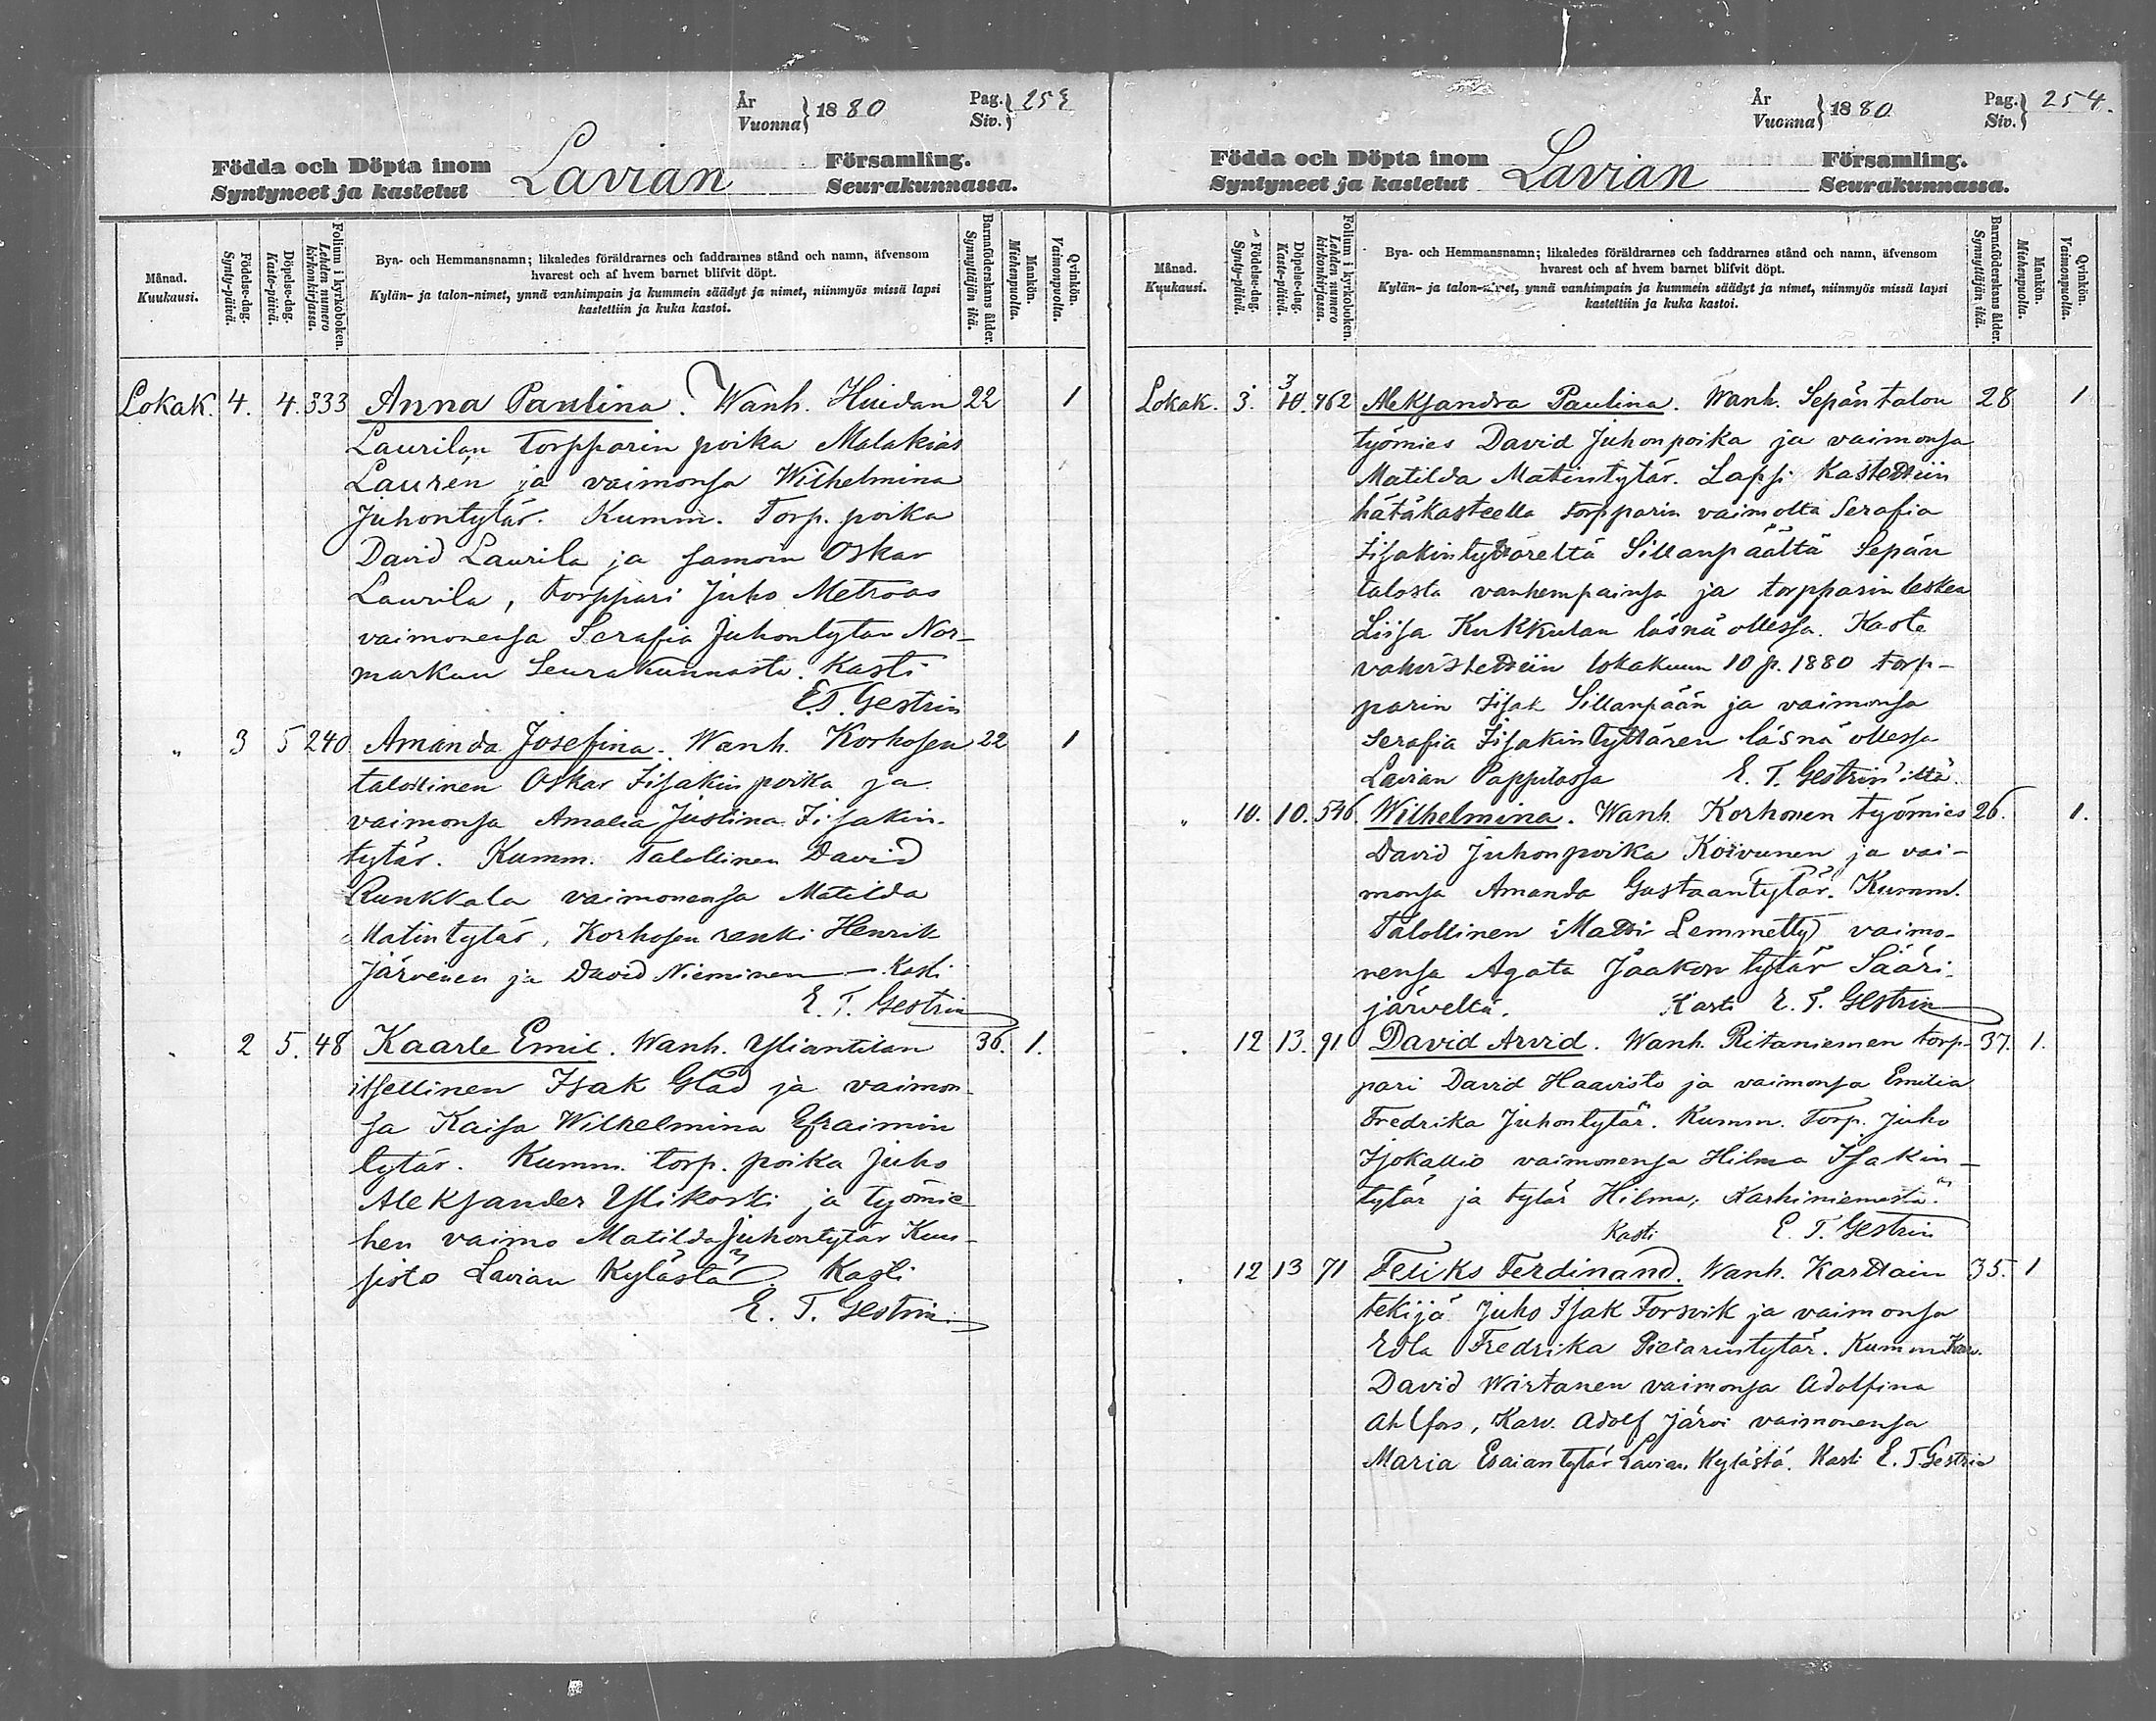 År
Vuonna } 1880
Pag.
Siv. } 253
Födda och Döpta inom
Syntyneet ja kastetut
Lavian
Församling.
Seurakunnassa.
Månad.
Kuukausi.
Födelse-dag.
Synty-päivä.
Döpelse-dag.
Kaste-päivä.
Folium i kyrkoboken.
Lehden numero
kirkonkirjassa.
Bya- och Hemmansnamn; likaledes föräldrarnes och faddrarnes stånd och namn, äfvensom
hvarest och af hvem barnet blifvit döpt.
Kylän- ja talon-nimet, ynnä vanhimpain ja kummein säädyt ja nimet, niinmyös missä lapsi
kastettiin ja kuka kastoi.
Barnaföderskans ålder.
Synnyttäjän ikä.
Mankön.
Miehenpuolia.
Qvinkön.
Vaimonpuolia.
Lokak. 4. 4. 333 Anna Paulina. Wanh. Huidan 22 1
Laurilan torpparin poika Malakias
Laurén ja vaimonsa Wilhelmina
Juhontytär. Kumm. Torp. poika
David Laurila ja samoin Oskar
Laurila, torppari Juho Metroos
vaimonensa Serafia Juhontytär Nor-
markun Seurakunnasta. Kasti
E.T. Gestrin
" 3 5 240 Amanda Josefina. Wanh. Korhosen 22 1
talollinen Oskar Iisakin poika ja
vaimonsa Amalia Justina Iisakin-
tytär. Kumm. Talollinen David
Runkkala vaimonensa Matilda
Matintytär, Korhosen renki Henrik
Järvinen ja David Nieminen — Kasti
E. T. Gestrin
" 2 5. 48 Kaarle Emil. Wanh. Yliantilan 36. 1.
itsellinen Isak Glad ja vaimon-
sa Kaisa Wilhelmina Efraimin
tytär. Kumm. torp. poika Juho
Aleksander Ylikoski ja työmie-
hen vaimo Matilda Juhontytär Kuu-
sisto Lavian Kylästä. Kasti
E. T. Gestrin
År
Vuonna } 1880
Pag.
Siv. } 254.
Födda och Döpta inom
Syntyneet ja kastetut
Lavian
Församling.
Seurakunnassa.
Månad.
Kuukausi.
Födelse-dag.
Synty-päivä.
Döpelse-dag.
Kaste-päivä.
Folium i kyrkoboken.
Lehden numero
kirkonkirjassa.
Bya- och Hemmansnamn; likaledes föräldrarnes och faddrarnes stånd och namn, äfvensom
hvarest och af hvem barnet blifvit döpt.
Kylän- ja talon-nimet, ynnä vanhimpain ja kummein säädyt ja nimet, niinmyös missä lapsi
kastettiin ja kuka kastoi.
Barnaföderskans ålder.
Synnyttäjän ikä.
Mankön.
Miehenpuolia.
Qvinkön.
Vaimonpuolia.
3
Lokak. 3. 10. 462 Aleksandra Paulina. Wanh. Sepän talon 28 1
työmies David Juhonpoika ja vaimonsa
Matilda Matintytär. Lapsi Kastettiin
hätäkasteella torpparin vaimolta Serafia
Iisakintyttäreltä Sillanpäältä Sepän
talosta vanhempainsa ja torpparinlesken
Liisa Kukkulan läsnä ollessa. Kaste
vahvistettiin lokakuun 10 p. 1880 torp-
parin Iisak Sillanpään ja vaimonsa
Serafia Iisakintyttären läsnä ollessa
Lavian Pappilassa E. T. Gestrin'iltä.
" 10. 10. 546 Wilhelmina. Wanh. Korhonen työmies 26. 1.
David Juhonpoika Koivunen ja vai-
monsa Amanda Gustaantytär. Kumm.
Talollinen Matti Lemmetty vaimo-
nensa Agata Jaakon tytär Sääri-
järveltä. Kasti E. T. Gestrin
" 12 13. 91 David Arvid. Wanh. Ritaniemen torp- 37. 1.
pari David Haavisto ja vaimonsa Emilia
Fredrika Juhontytär. Kumm. Torp. Juho
Isokallio vaimonensa Hilma Isakin-
tytär ja tytär Hilma, Karhiniemestä.
Kasti E. T. Gestrin
" 12 13 71 Feliks Ferdinand. Wanh. Karttain 35. 1
tekijä Juho Isak Forsvik ja vaimonsa
Edla Fredrika Pietarintytär. Kumm Karv.
David Wirtanen vaimonsa Adolfina
Ahlfors, Karv. Adolf Järvi vaimonensa
Maria Esaiantytär Lavian Kylästä. Kasti E. T. Gestrin